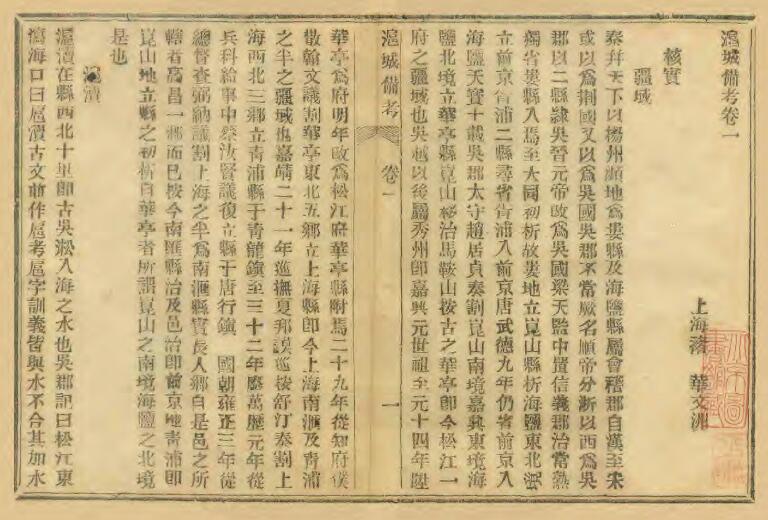 滬城備考卷一
上海褚 華文洲
核實
疆域
秦幷天下以揚州瀕地爲婁縣及海鹽縣屬會稽郡自漢至宋
或以爲荆國又以爲吳國吳郡不常厥名順帝分浙以西爲吳
郡以二縣隷吳晉元帝改爲吳國梁天監中置信義郡治常熟
獨省婁縣入焉至大同初析故婁地立崑山縣析海鹽東北
立前京 浦二縣尋省胥浦入前京唐武德九年仍省前京入
海鹽天寶十載吳郡太守趙居貞奏割崑山南境嘉興東境海
鹽北境立華亭縣崑山移治馬鞍山按古之華亭卽今松江一
府之疆域也吳越以後屬秀州卽嘉興元世祖至元十四年陞
滬城備考 卷一 一
華亭爲府明年改爲松江府華亭縣附焉二十九年從知府僕
散翰文議割華亭東北五鄉立上海縣卽今上海南滙及青浦
之半之疆域也嘉靖二十一年巡撫夏邦謨巡按舒汀奏割上
海西北三鄉立青浦縣于青龍鎮至三十二年廢萬歷元年從
兵科給事中蔡汝賢議復立縣于唐行鎮 國朝雍正三年從
總督查弼納議割上海之半爲南滙縣實長人鄉自是邑之所
轄者高昌一鄉而已按今南匯縣治及邑治卽前京地青浦卽
崑山地立縣之初析自華亭者所謂崑山之南境海鹽之北境
是也
滬瀆
滬瀆在縣西北十里卽古吳淞入海之水也吳郡記曰松江東
瀉海口曰扈瀆古文前作扈考扈字訓義皆與水不合其加水